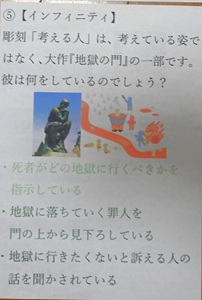 ⑤【インフィニティ】
彫刻「考える人」は、考えている姿で
はなく、大作『地獄の門』の一部です。
彼は何をしているのでしょう？
・死者がどの地獄に行くべきかを
指示している
・地獄に落ちていく罪人を
門の上から見下ろしている
・地獄に行きたくないと訴える人の
話を聞かされている